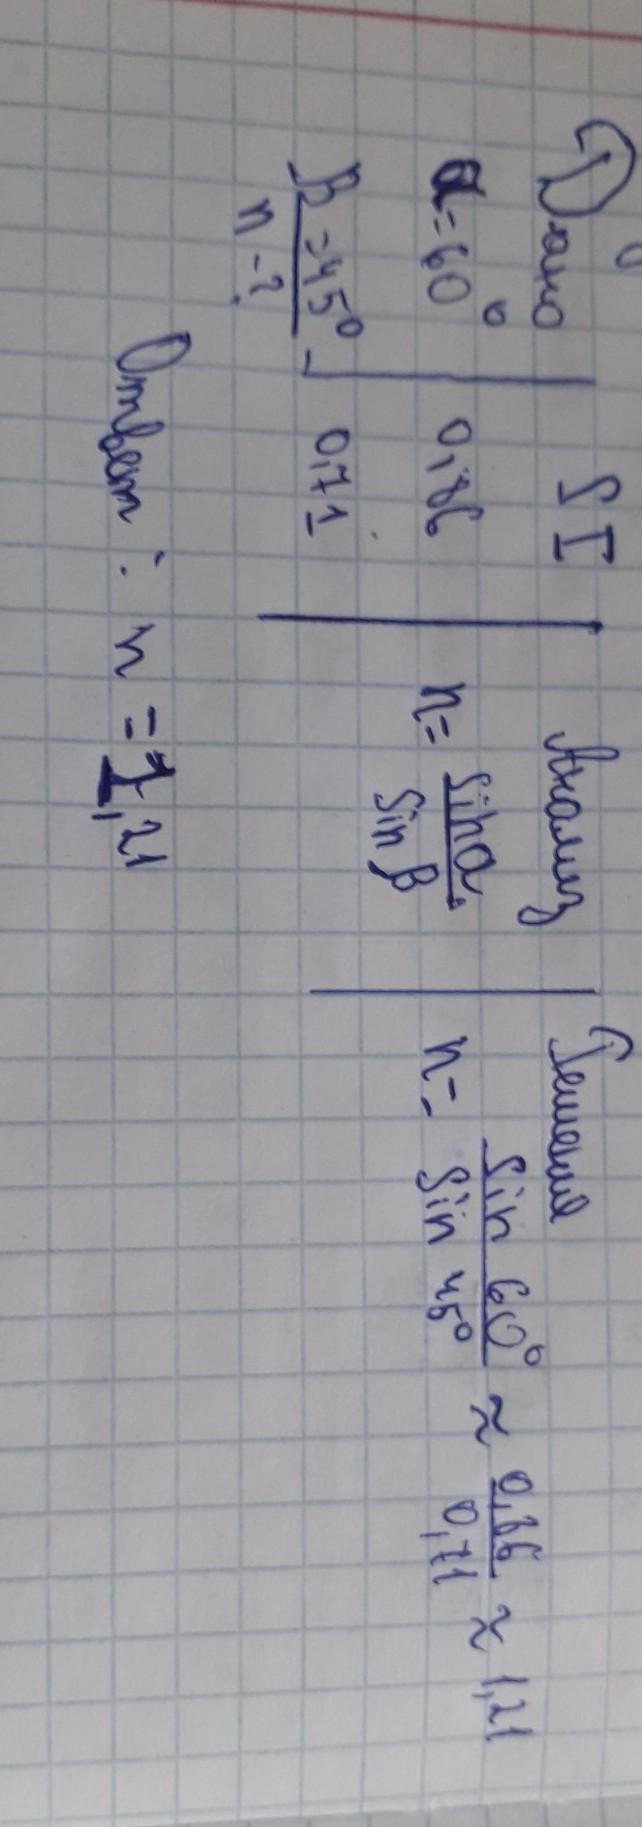 Дано
α = 60°
β = 45°
n - ?
SI
0,86
0,71
Анализ
n = sin α / sin β
Решение
n = sin 60° / sin 45° ≈ 0,86 / 0,71 ≈ 1,21
Ответ: n = 1,21